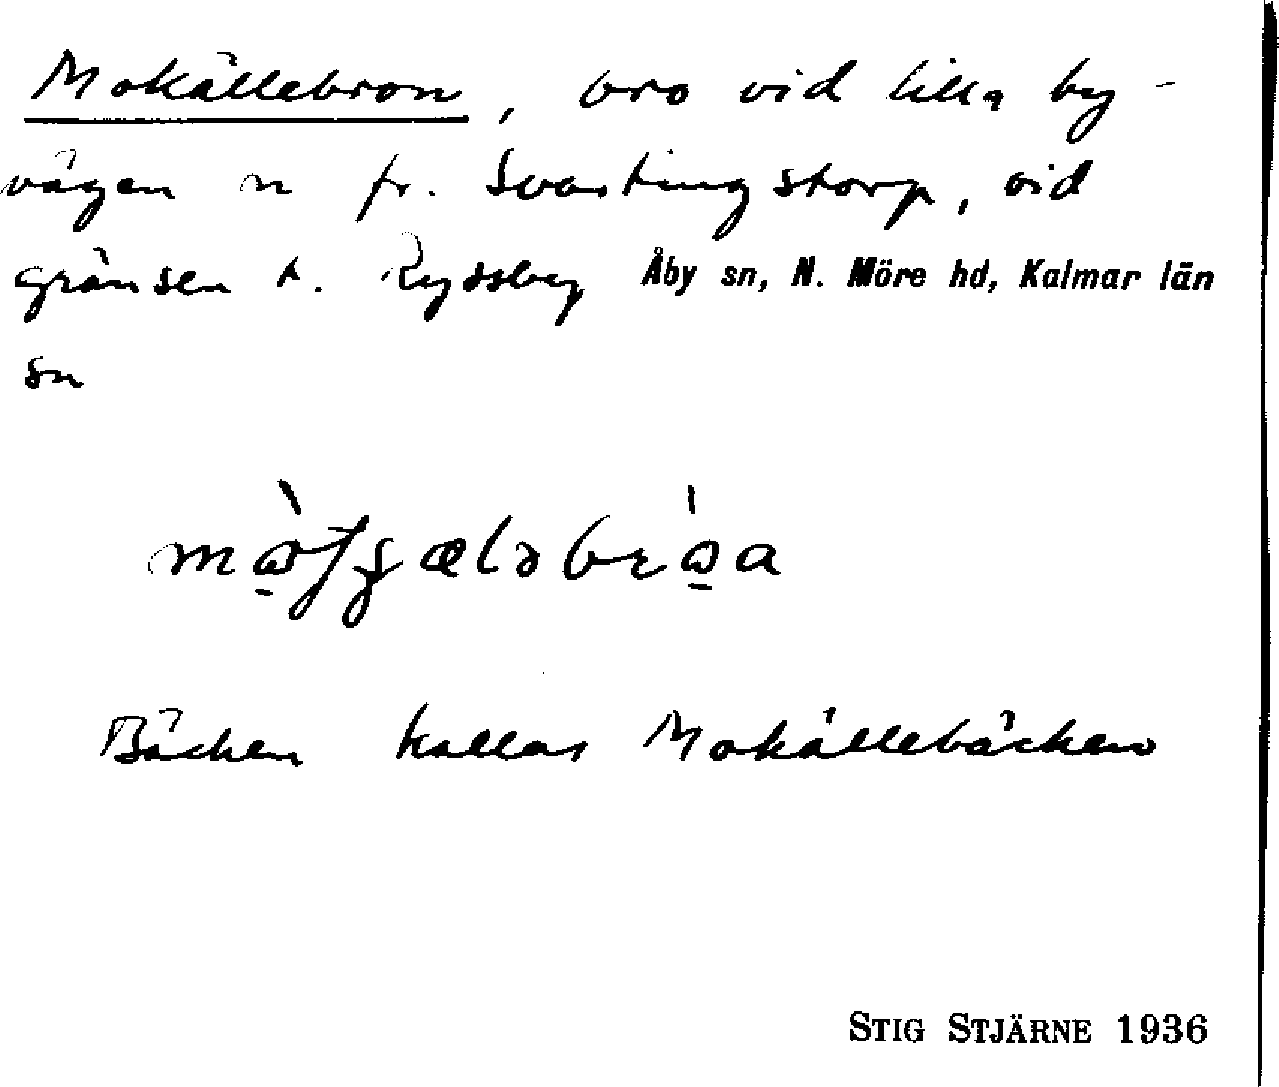 Mokällebron, bro vid lilla by-
vägen n fr. Svartingstorp, vid
gränsen t. Ryssby Åby sn, N. Möre hd, Kalmar län
sn
Bäcken kallas Mokällebäcken
STIG STJÄRNE 1936